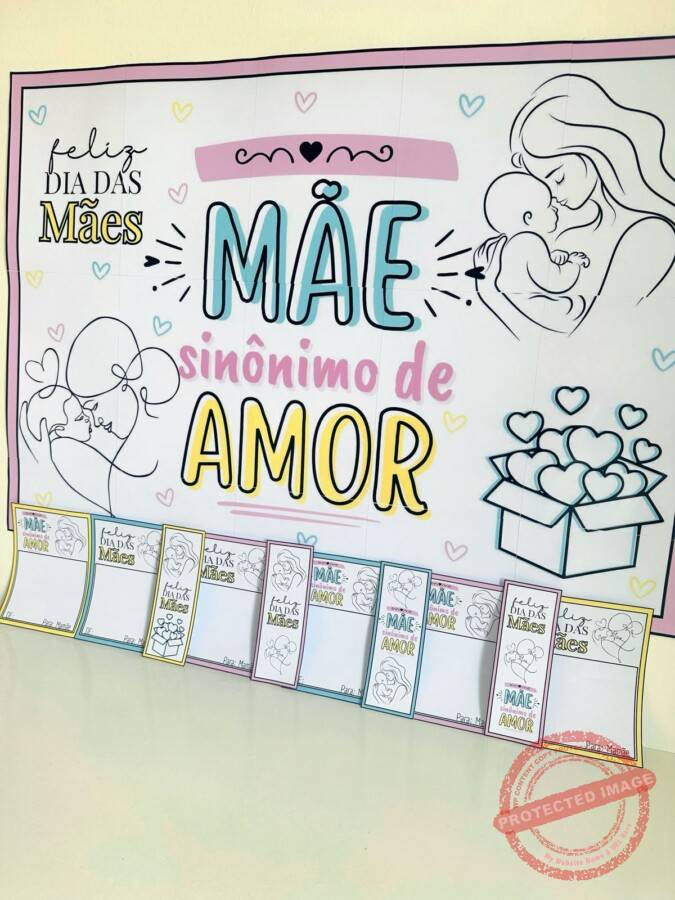 feliz
DIA DAS
Mães
MÃE
sinônimo de
AMOR
MÃE
sinônimo de
AMOR
feliz
DIA DAS
Mães
Para: Mamãe
feliz
DIA DAS
Mães
feliz
DIA DAS
Mães
feliz
DIA DAS
Mães
MÃE
sinônimo de
AMOR
MÃE
sinônimo de
AMOR
MÃE
sinônimo de
AMOR
feliz
DIA DAS
Mães
MÃE
sinônimo de
AMOR
feliz
DIA DAS
Mães
Para: Mamãe
PROTECTED IMAGE
My Website Name & URL Here